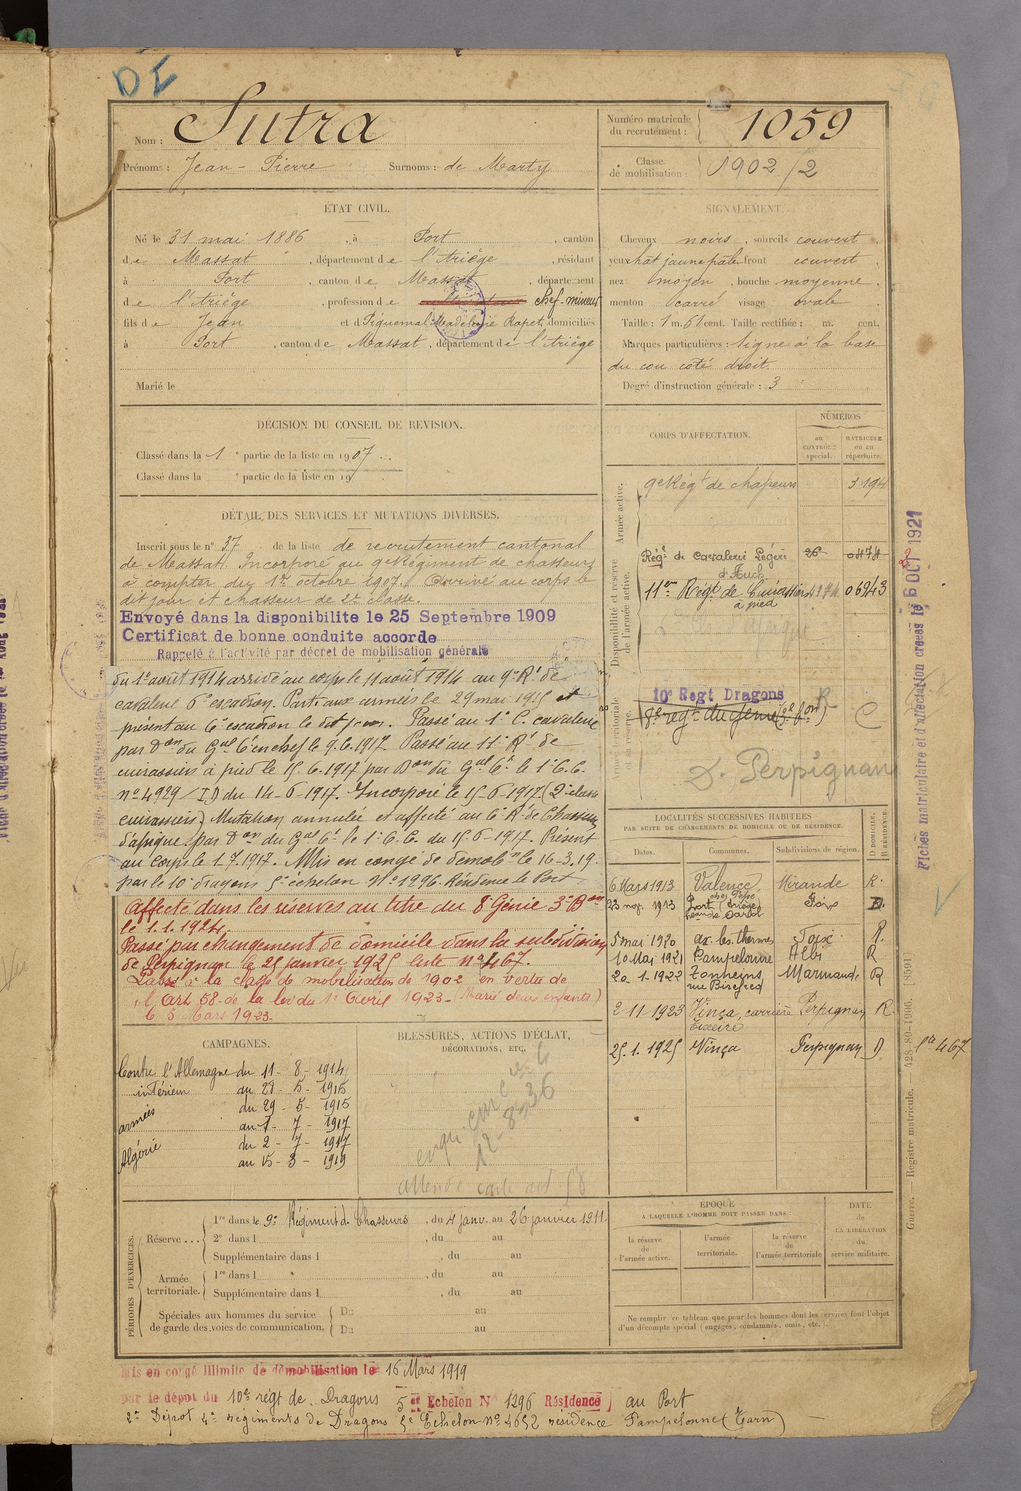 Nom : Sutra
Prénoms : Jean-Pierre Surnoms : de Marty
Numéro matricule du recrutement : 1059
Classe de mobilisation : 1902/2
ÉTAT CIVIL.
Né le 31 mai 1886, à Port, canton
de Massat, département de l'Ariège, résidant
à Port, canton de Massat, département
de l'Ariège, profession de chef-mineur
fils de Jean et de Piquemal Madeleine Rapet, domiciliés
à Port, canton de Massat, département de l'Ariège
Marié le
SIGNALEMENT.
Cheveux noirs, sourcils couvert,
yeux chât jaune pâle front couvert,
nez moyen, bouche moyenne,
menton carré visage ovale
Taille : 1 m. 61 cent. Taille rectifiée : m. cent.
Marques particulières : signe à la base
du cou coté droit.
Degré d'instruction générale : 3
DÉCISION DU CONSEIL DE REVISION.
Classé dans la 1e partie de la liste en 1907
Classé dans la e partie de la liste en 19
DÉTAIL DES SERVICES ET MUTATIONS DIVERSES.
Inscrit sous le n° 37 de la liste de recrutement cantonal
de Massat. Incorporé au 9e Régiment de chasseurs
à compter du 1er octobre 1907. Arrivé au corps le
dit jour et chasseur de 2e classe.
Envoyé dans la disponibilite le 25 Septembre 1909
Certificat de bonne conduite accorde
Rappelé à l'activité par décret de mobilisation générale
du 1er août 1914 arrivé au corps le 11 août 1914 au 9e Rt de
cavalerie 6e escadron. Parti aux armées le 29 mai 1915 et
présent au 6e escadron le dit jour. Passé au 1er C. cavalerie
par Don du Gal Ct en chef le 9.6.1917. Passé au 11e Rt de
cuirassiers à pied le 15.6.1917 par Don du Gal Ct le 1er C.C.
n° 4929/ID du 14-6-1917. Incorporé le 15-6-1917 (2e classe
cuirassiers) Mutation annulée et affecté au 6e Rt de Chasseurs
d'afrique par Don du Gal Ct le 1er C.C. du 15-6-1917. Présent
au Corps le 1.7.1917. Mis en congé de démobn le 16-3-19
par le 10e dragons 5e échelon N° 1296. Résidence le Port
Affecté dans les réserves au titre du 8e Génie 3e Bon
le 1.1.1924.
Passé par changement de domicile dans la subdivision
de Perpignan le 25 janvier 1925 liste n° 467.
Passé à la classe de mobilisation de 1902 en vertu de
l'art 58 de la loi du 1er Avril 1923 - (Marié deux enfants)
le 5 Mars 1923.
CORPS D'AFFECTATION.
NUMÉROS
au contrôle spécial.
matricule ou au répertoire.
Armée active.
9e Régt de chasseurs 3194
Disponibilité et réserve de l'armée active.
Régt de Cavalerie Légère 26 0474
d'Auch
11e Régt de Cuirassiers 06943
à pied
Armée territoriale et sa réserve
10e Regt Dragons R
8e regt du génie (3e Bon) C
D. Perpignan
LOCALITÉS SUCCESSIVES HABITÉES
PAR SUITE DE CHANGEMENTS DE DOMICILE OU DE RÉSIDENCE.
Dates. Communes. Subdivisions de région. D DOMICILE. R RÉSIDENCE.
6 Mars 1913 Valence Mirande R.
23 nov. 1913 Port (Ariège) Foix D.
5 mai 1920 ax-les-thermes Foix R.
10 Mai 1921 Pampelonne Albi R
20.1.1922 Tonneins Marmande R
2-11-1923 Vinça, carrière Perpignan R.
25.1.1925 Vinça Perpignan D. Lte 467
Fiches matriculaire et d'affectation creees le 6 OCT 1921
Guerre. — Registre matricule. — 428-80-1906. [8501]
CAMPAGNES.
Contre l'Allemagne du 11 - 8 - 1914
intérieur au 28 - 5 - 1915
armées du 29 - 5 - 1915
au 1 - 7 - 1917
Algérie du 2 - 7 - 1917
au 15 - 3 - 1919
BLESSURES, ACTIONS D'ÉCLAT,
DÉCORATIONS, ETC.
12-8-36
attend carte art 58
PÉRIODES D'EXERCICES.
Réserve . . .
1re dans le 9e Régiment de Chasseurs, du 4 janv. au 26 janvier 1911.
2e dans l , du au
Supplémentaire dans l , du au
Armée territoriale.
1re dans l , du au
Supplémentaire dans l , du au
Spéciales aux hommes du service de garde des voies de communication.
Du au
Du au
ÉPOQUE
A LAQUELLE L'HOMME DOIT PASSER DANS :
la réserve de l'armée active.
l'armée territoriale.
la réserve de l'armée territoriale
DATE de LA LIBÉRATION du service militaire.
Ne remplir ce tableau que pour les hommes dont les services font l'objet
d'un décompte spécial (engagés, condamnés, omis, etc.)
Mis en congé illimité de démobilisation le 16 Mars 1919
par le dépôt du 10e régt de Dragons 5e Echelon N° 1296 Résidence au Port
2e Dépot 4e régiments de Dragons 5e Echelon n° 4652 résidence Pampelonne (Tarn)